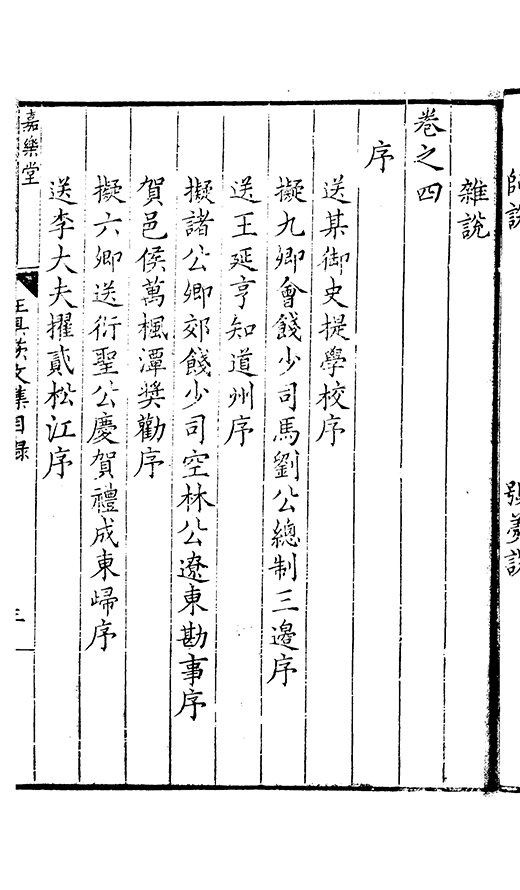 師說
雜說
卷之四
序
送某御史提學校序
擬九卿會餞少司馬劉公總制三邊序
送王延亨知道州序
擬諸公卿郊餞少司空林公遼東勘事序
賀邑侯萬楓潭奬勸序
擬六卿送衍聖公慶賀禮成東歸序
送李大夫擢貳松江序
嘉樂堂
文集目錄
三